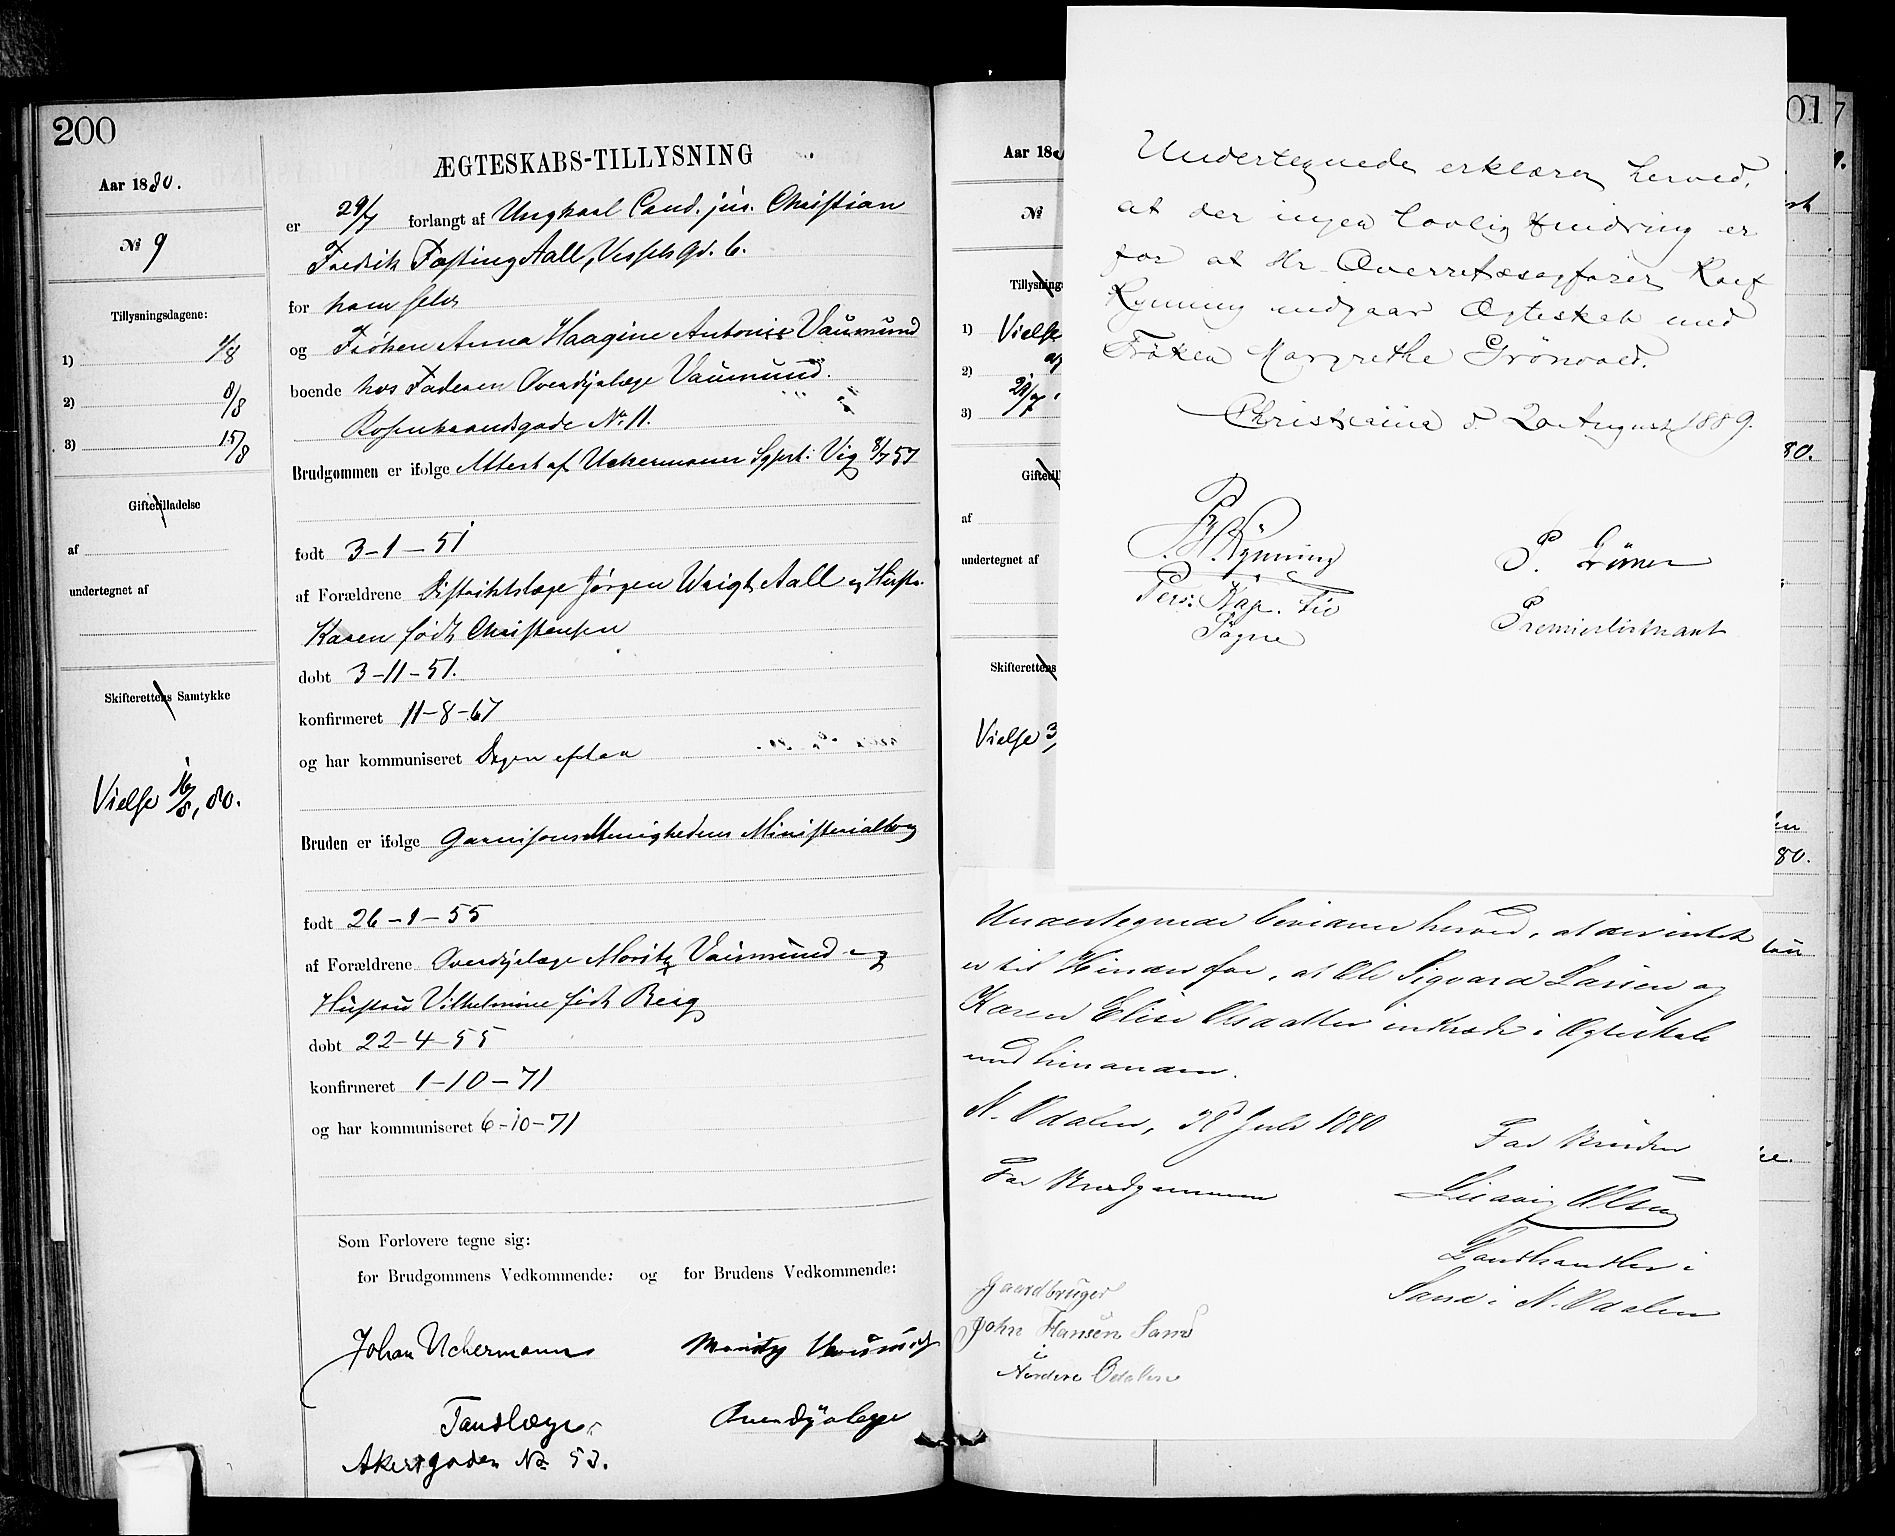 200
ÆGTESKABS-TILLYSNING
Aar 1880.
№ 9
Tillysningsdagene:
1) 1/8
2) 8/8
3) 15/8
Giftetilladelse
af
undertegnet af
Skifterettens Samtykke
Vielse 16/8, 80.
er 29/7 forlangt af Ungkarl Cand. jur. Christian
Fredrik Fasting Aall, Vessels Gd. 6.
for ham selv
og Frøken Anna Haagine Antonie Vaumund
boende hos Faderen Overdyrlæge Vaumund.
Rosenkrandsgade No. 11.
Brudgommen er ifølge Attest af
født 3-1-51
af Forældrene Distriktslæge Jørgen Wright Aall og Hustr.
Karen født Christensen
døbt 3-11-51.
konfirmeret 11-8-67
og har kommuniseret Dagen efter
Bruden er ifølge Garnisons Menighedens Ministerialbog
født 26-1-55
af Forældrene Overdyrlæge Moritz Vaumund og
Hustru Vilhelmine født Berg
døbt 22-4-55
konfirmeret 1-10-71
og har kommuniseret 6-10-71
Som Forlovere tegne sig:
for Brudgommens Vedkommende: og for Brudens Vedkommende:
Johan Uchermann Moritz Vaumund
Tandlæge Overdyrlæge
Akersgaden No 53.
01
7
Aar 188
№
Tillysnings
1) Vielse
2)
3)
Giftetill
af
undertegnet af
Skifterettens
Vielse 3/
80.
80.
Undertegnede erklærer herved,
at der ingen lovlig Hindring er
for at Hr. Overretssagfører Rolf
Rynning indgaar Ægteskab med
Frøken Margrethe Grönvold.
Christiania d 20 August 1889.
Rynning
Pers: Kap. til
Sogne
Premierlieutnant
Undertegnede bevidner herved, at der intet
er til Hinder for, at Ole Sigvard Larsen og
Karen Elise Olsdatter indtræde i Ægteskab
med hinanden.
N. Odalen, 28 Juli 1880
For Brudgommen
For Bruden
Ludvig Olsen
Landhandler i
Sand i N. Odalen
Gaardbruger
John Hansen Sand
i
Nordre Odalen